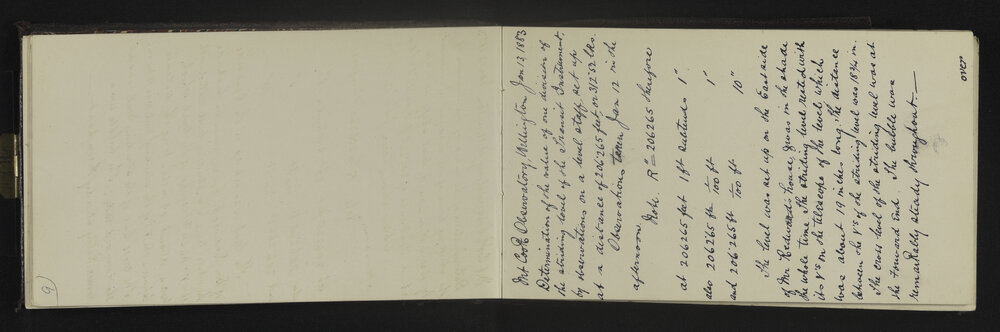 Mt Cook Observatory, Wellington Jan 13 1883
Determination of the value of one division of
the striding level of the Transit Instrument,
by observations on a level staff set up
at a distance of 206.265 feet or 312.52 lks.
Observations taken Jan 12 in the
afternoon
Note. R" = 206265 therefore
at 206265 feet 1 ft subtends 1"
also 2062.65 ft 1/100 ft 1"
and 206.265 ft 1/100 ft 10"
The level was set up on the East side
of Mr house, & was in the shade
the whole time. The striding level rested with
its Y's on the telescope of the level which
was about 19 inches long. The distance
between the Y's of the striding level was 18 3/4 in.
The cross level of the striding level was at
the Forward End. The bubble was
remarkably steady throughout. —
over
9)